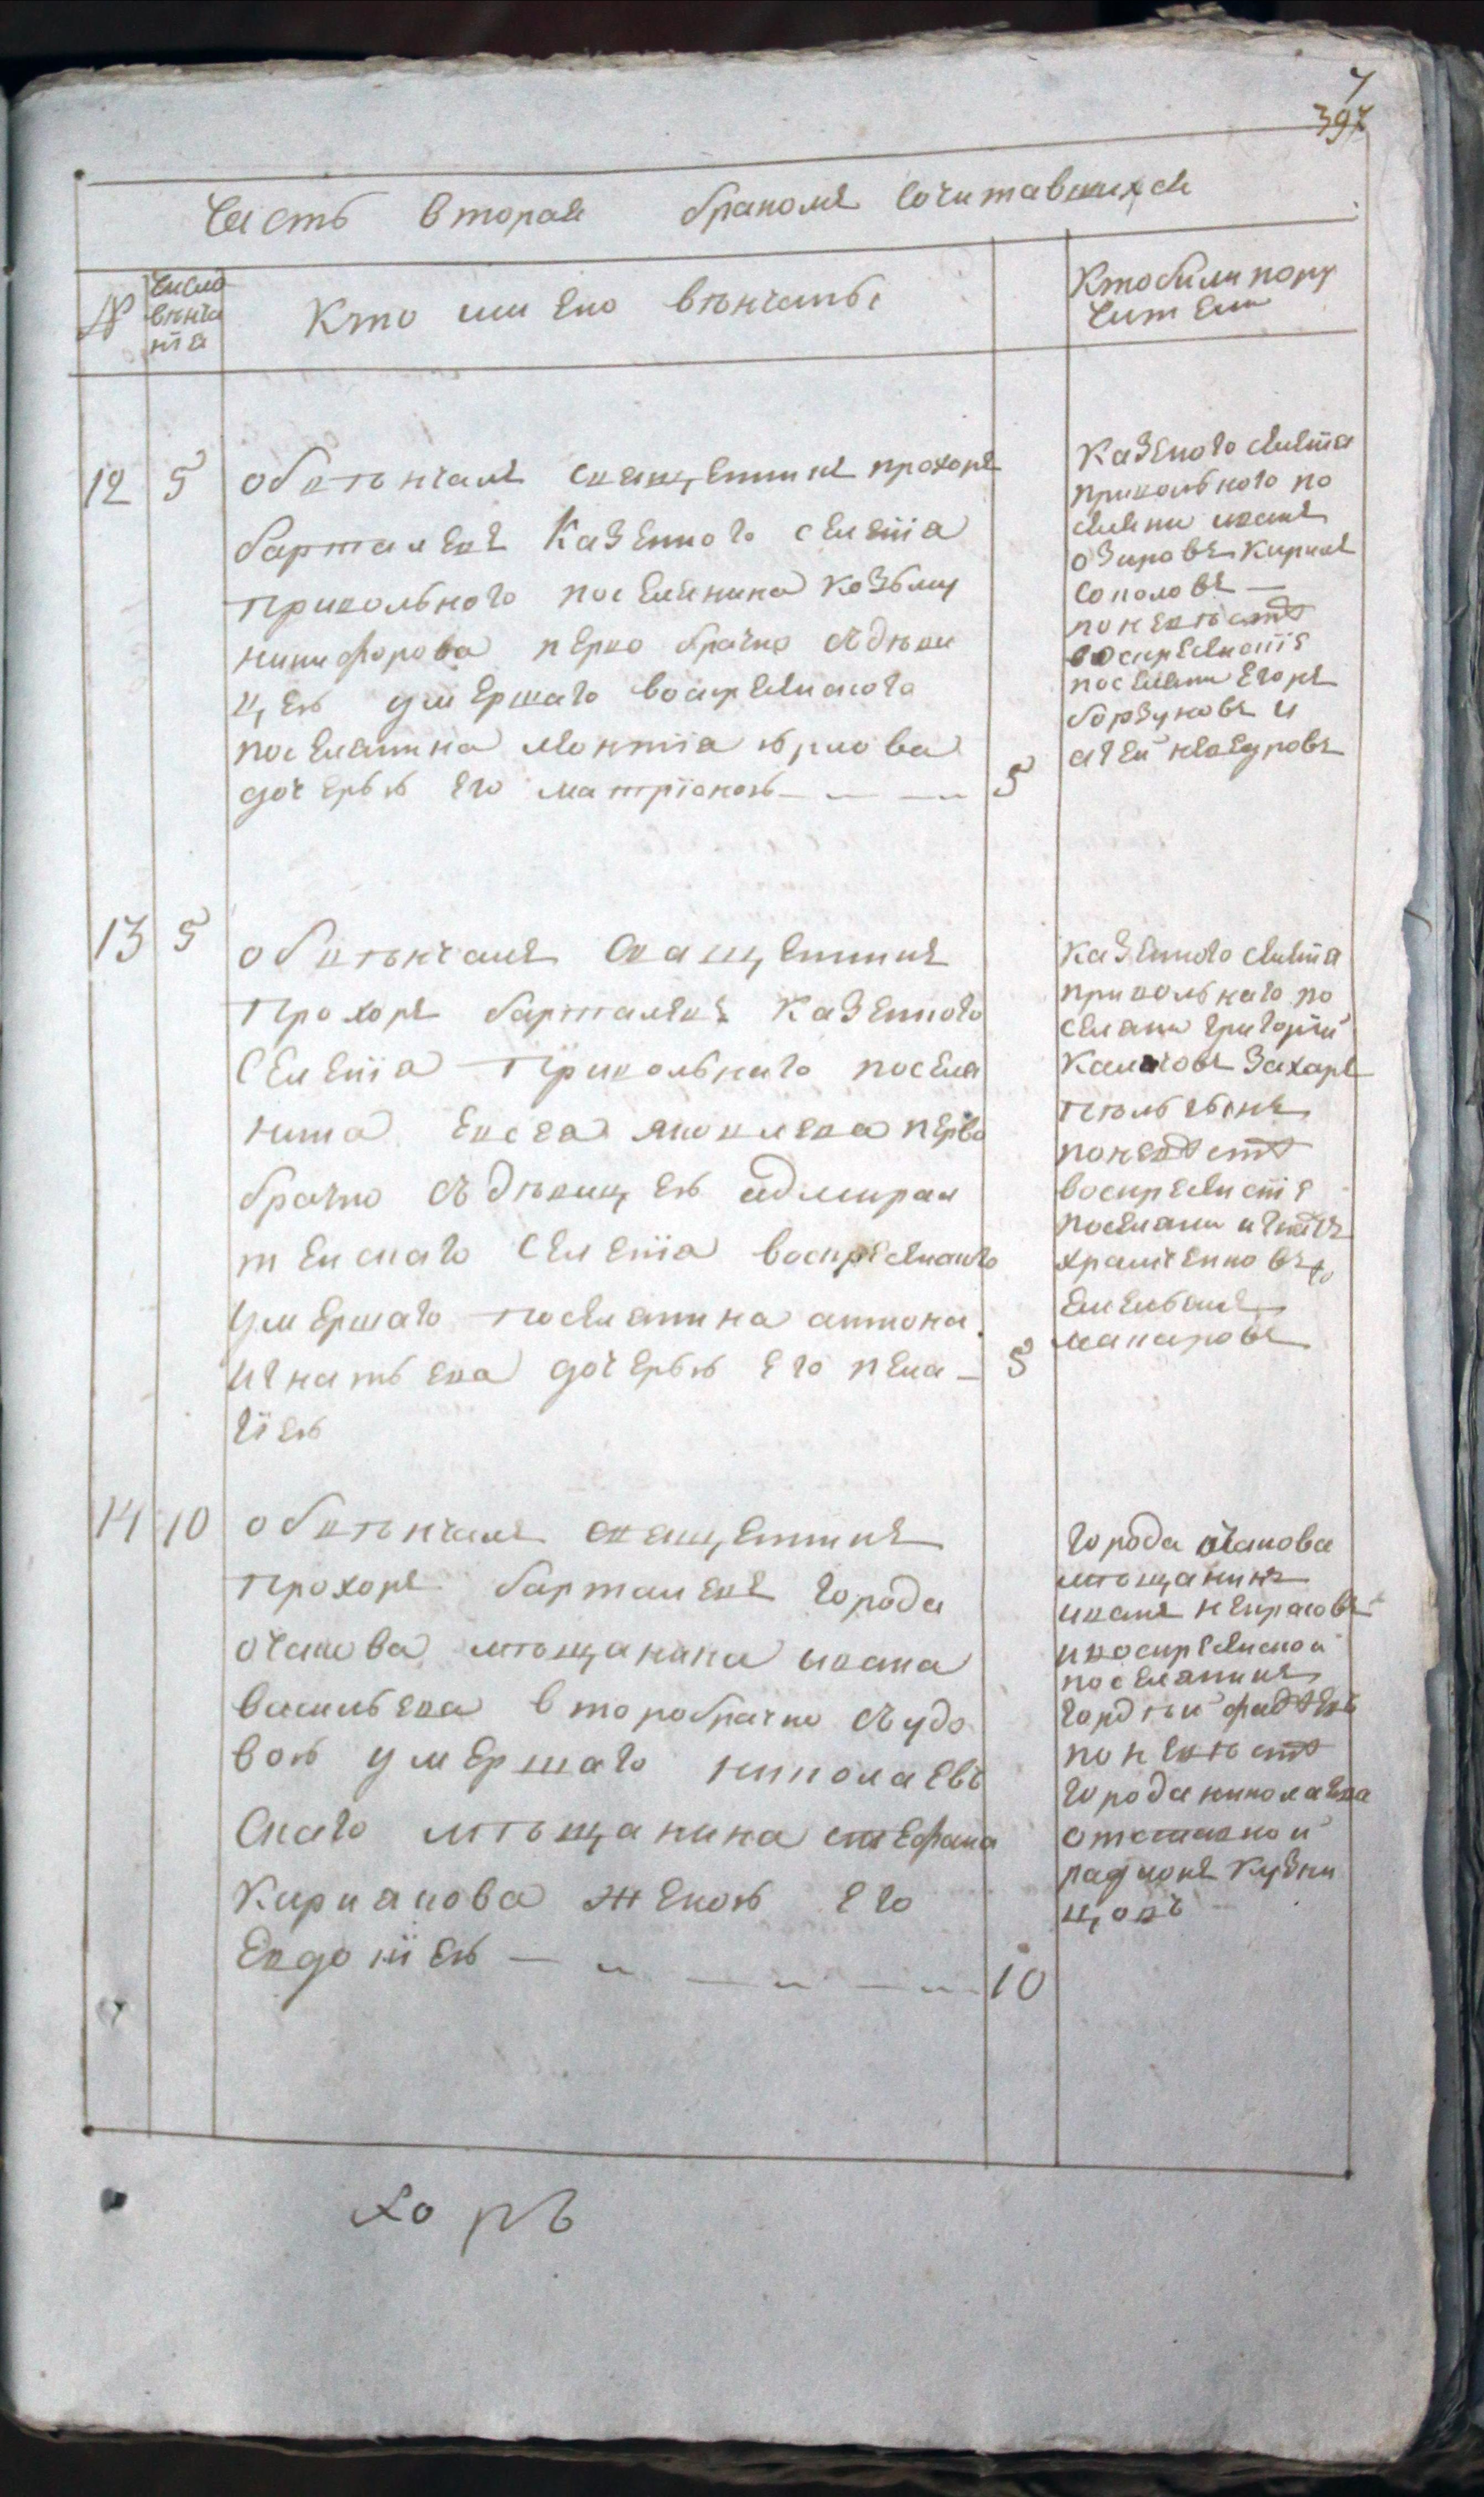 7
397
Часть вторая бракомъ сочитавшихся
№
число
вѣнча
нїа
Кто или ково вѣнчаны
Кто были пору
чители
12 5 обвѣнчалъ священникъ прохоръ
барталевъ Казенного селенїа
привольного поселенина козьму
никифорова перво брачно съ дѣви
цею умершаго воскресенского
поселянина леонтїа юрлова
дочерью его матрїоною 5
Казеного селенїа
привольного по
селяни иванъ
озировъ кирилъ
соколовъ
по невѣстѣ
воскресенстїе
поселяни Егоръ
борзуковъ и
13 5 обвѣнчалъ священникъ
прохоръ барталевъ Казенного
Селенїа привольнаго поселя
нина евсея яковлева перво
брачно съ дѣвицею адмирал
тейскаго селенїа воскресенскаго
умершаго поселянина антона
игнатьева дочерью его пела 5
гїею
Казенного селенїа
привольнаго по
селяни григорїй
захаръ
по невѣстѣ
воскресенстїе
поселяни игнатъ
храмченковъ
Емельянъ
макаровъ
14 10 обвѣнчалъ священникъ
прохоръ барталевъ города
очакова мѣщанина ивана
васильева второбрачно съ удо
вою умершаго николаевъ
скаго мѣщанина стефана
Кириакова женою его
Евдокїею 10
города очакова
мѣщанинъ
иванъ некрасовъ
и воскресенской
поселянинъ
гордѣй фадѣевъ
по невѣстѣ
города николаева
отставной
радионъ кузни
цовъ
хоръ